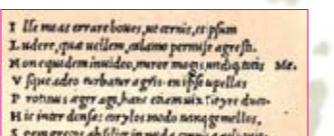 I lle meas errare boues, ut cernis, et ipsum
L udere, quæ uellem, calamo permisit agresti.
N on equidem inuideo, miror magis, undiq; totis Me.
V sque adeo turbatur agris. en ipse capellas
P rotinus æger ago, hanc etiam uix Tityre duco.
H ic inter densas corylos modo nanq; gemellos,
S pem gregis